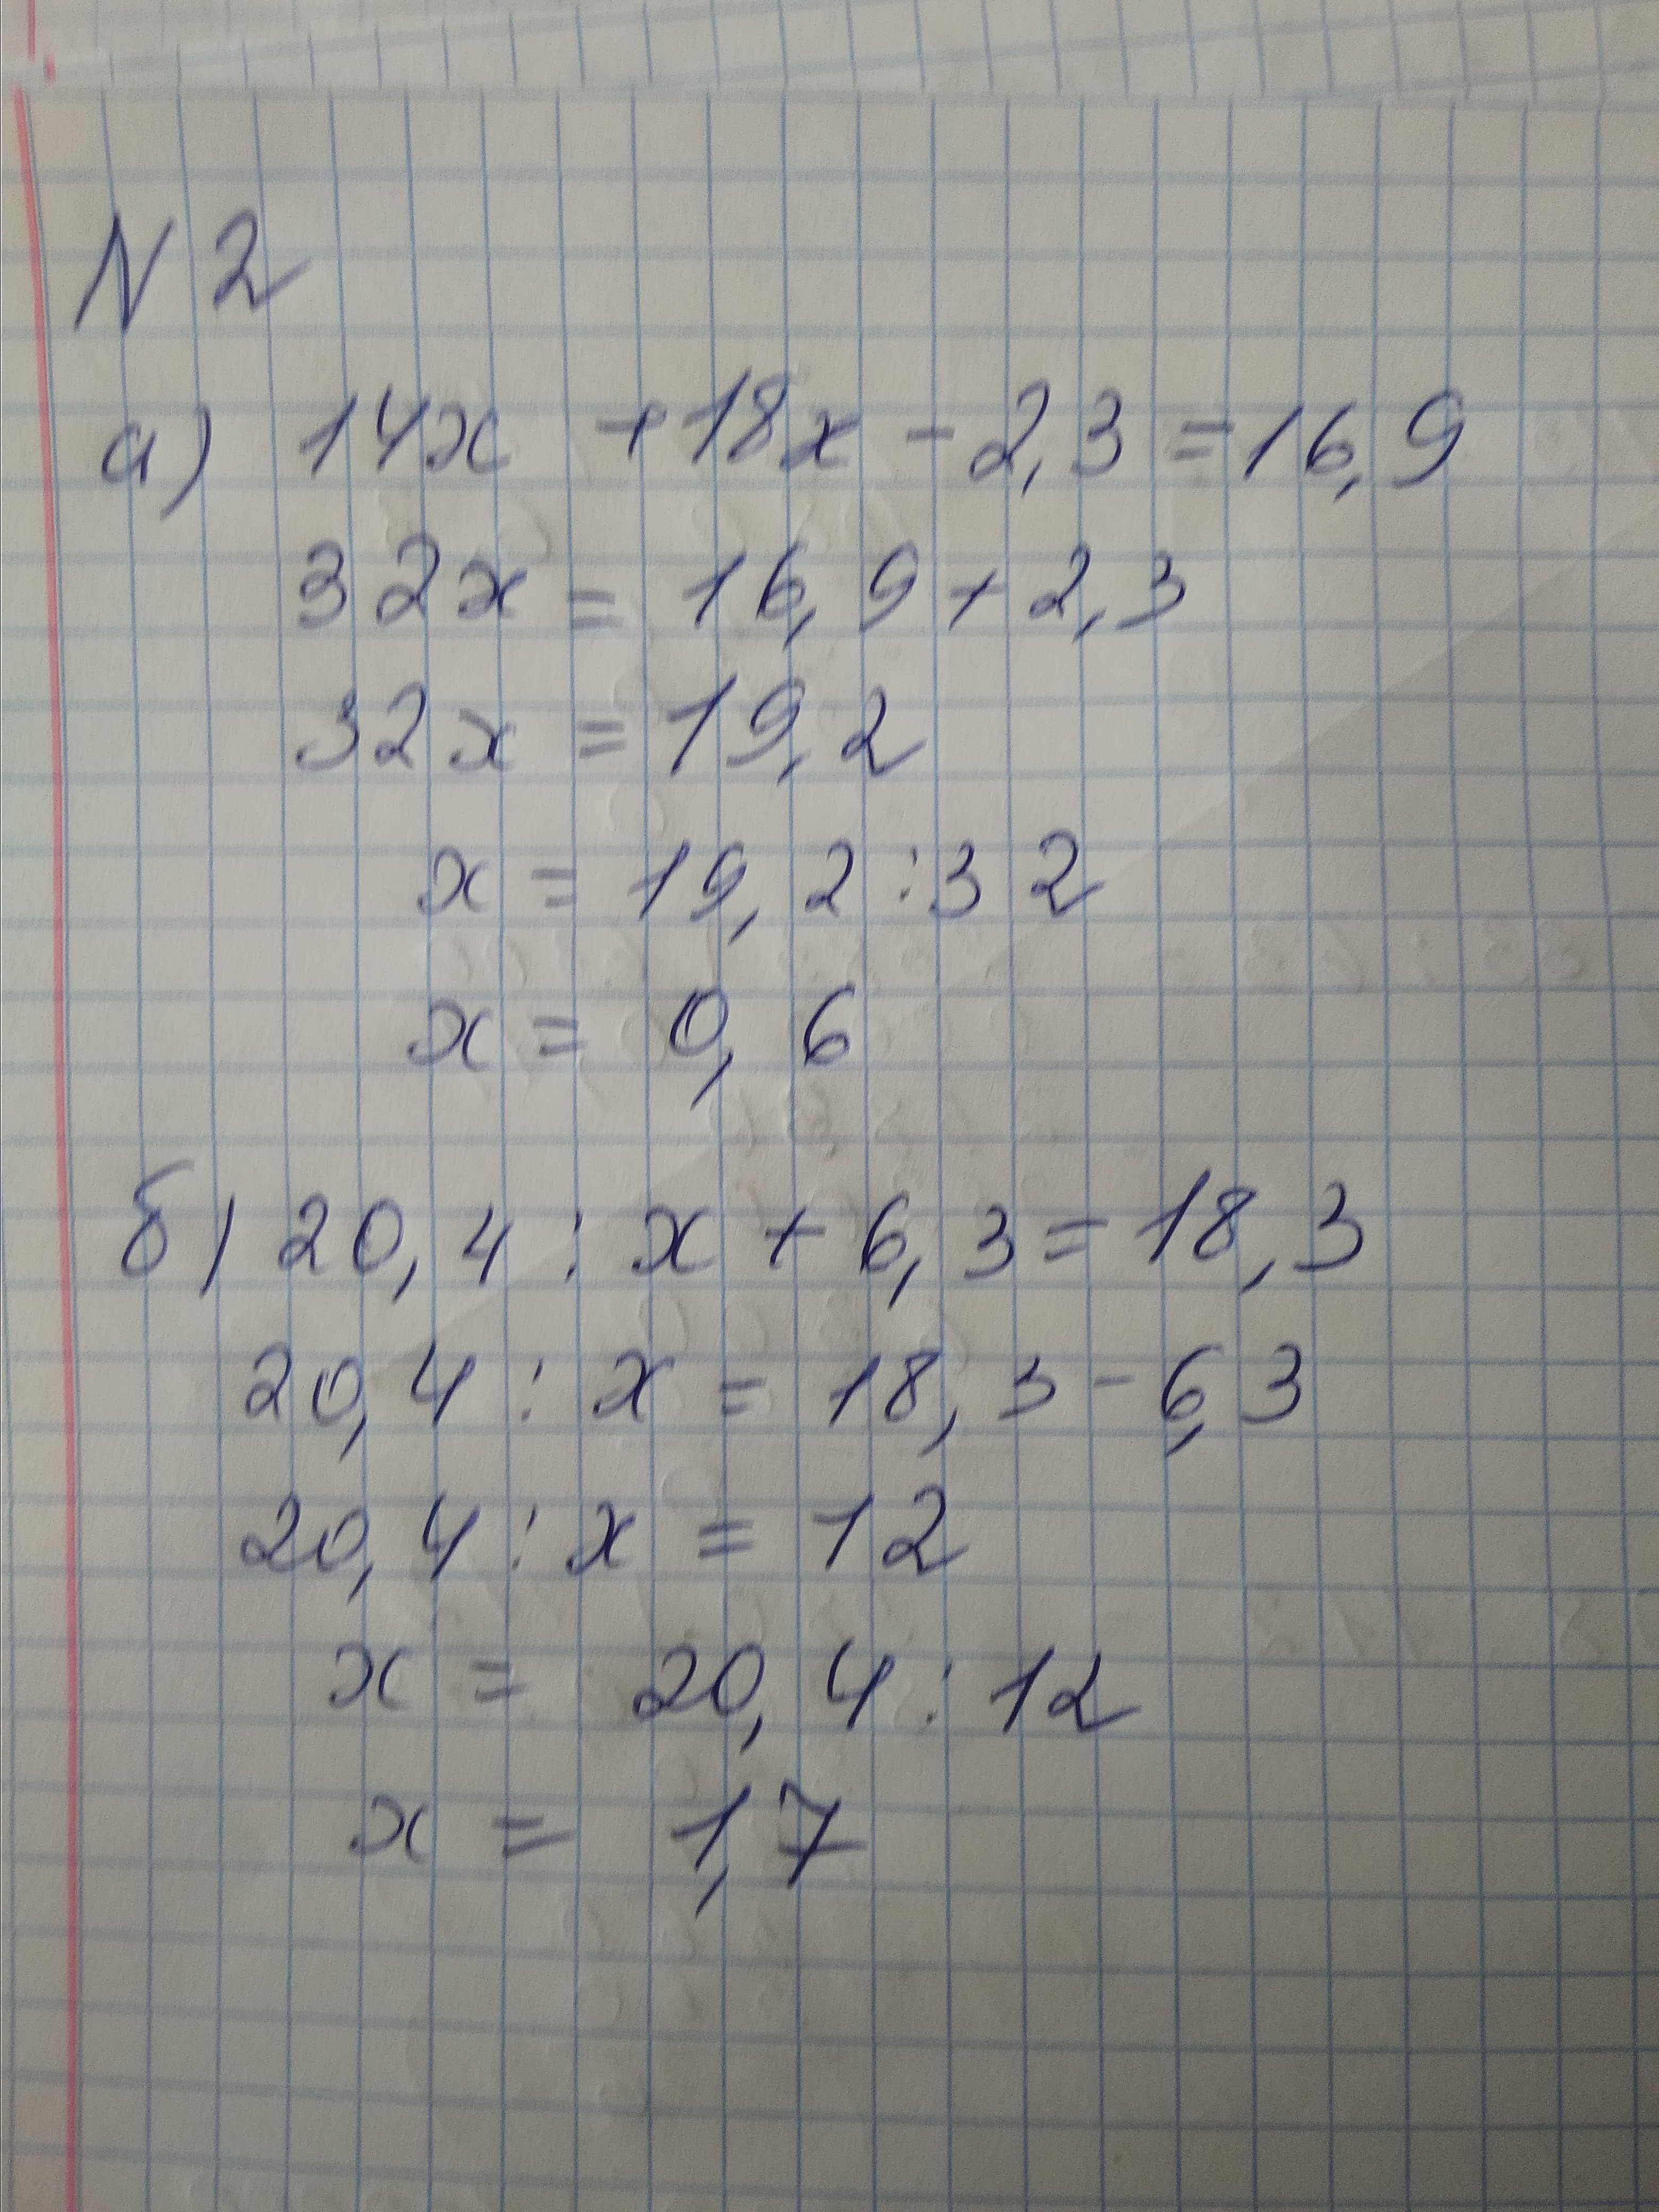 N 2
а) 14x + 18x - 2,3 = 16,9
32x = 16,9 + 2,3
32x = 19,2
x = 19,2 : 32
x = 0,6
б) 20,4 : x + 6,3 = 18,3
20,4 : x = 18,3 - 6,3
20,4 : x = 12
x = 20,4 : 12
x = 1,7